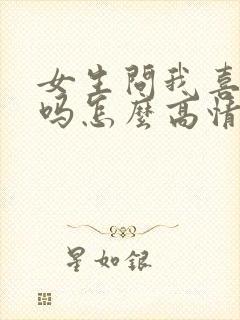 女生問我喜
吗怎麼高情
星如銀